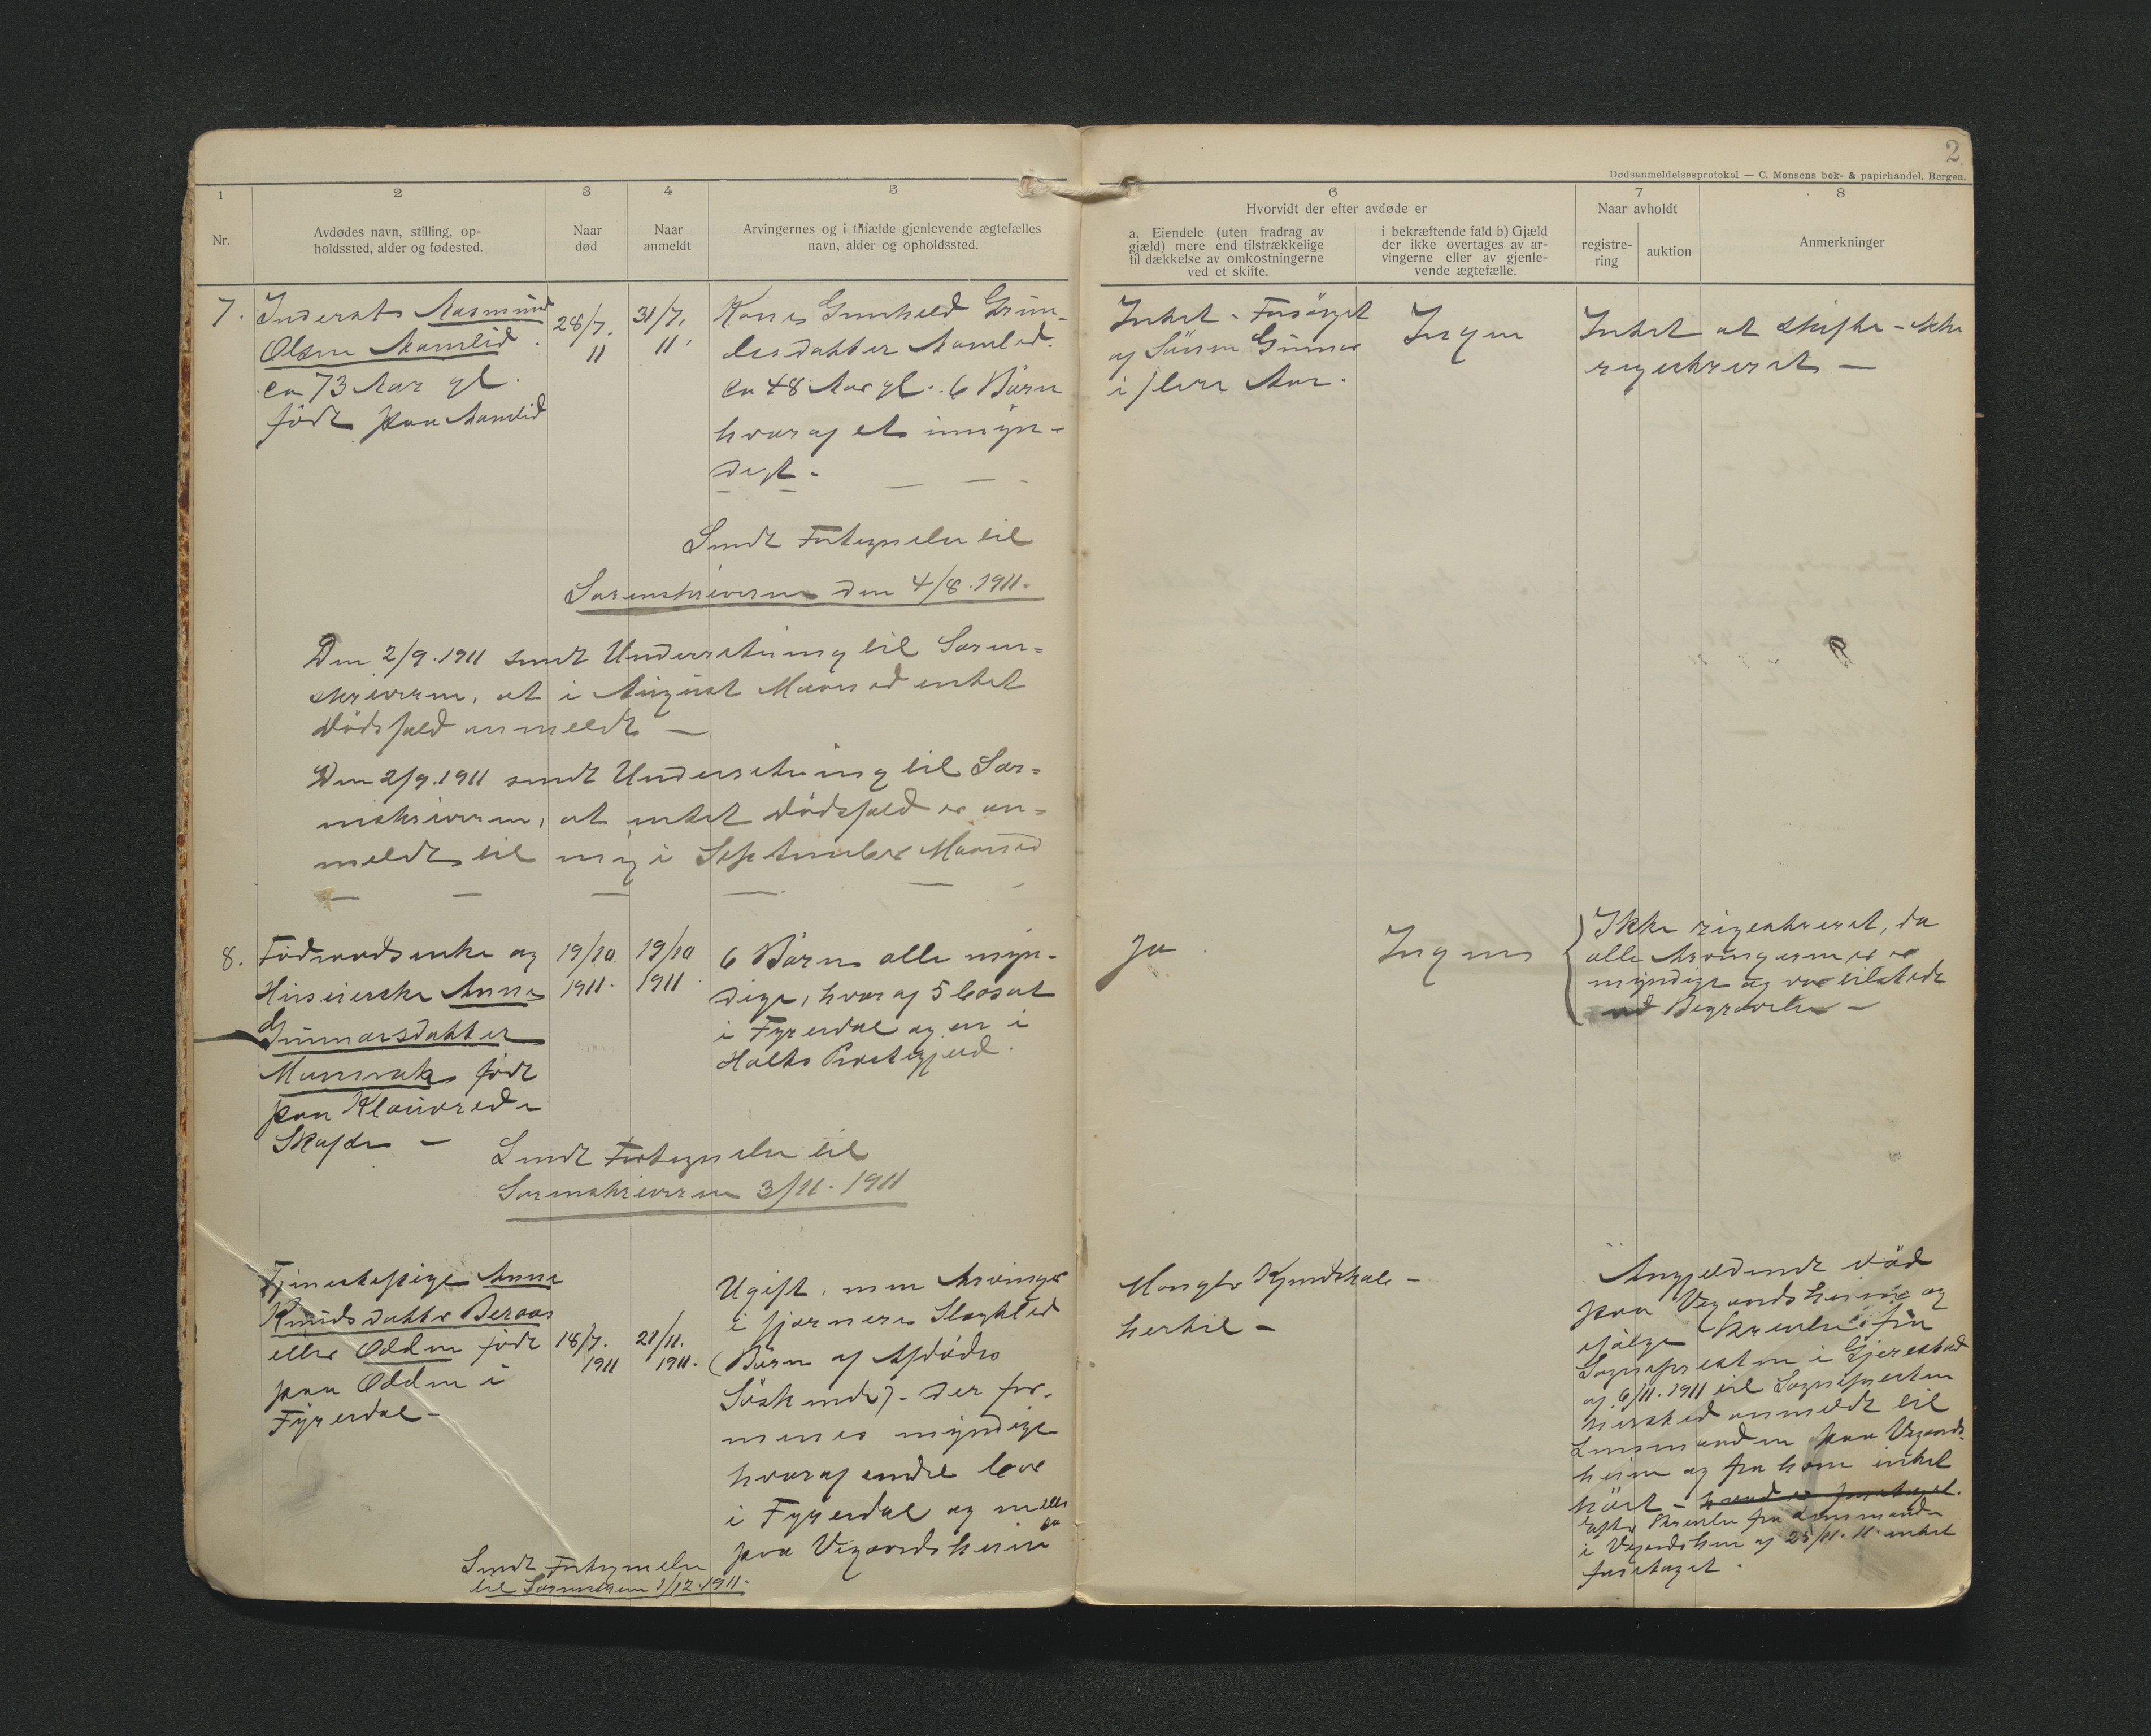 2
Dødsanmeldelsesprotokol — C. Monsens bok- & papirhandel, Bergen.
1
2
3
4
5
6
7
8
Nr.
Avdødes navn, stilling, op-
holdssted, alder og fødested.
Naar
død
Naar
anmeldt
Arvingernes og i tilfælde gjenlevende ægtefælles
navn, alder og opholdssted.
Hvorvidt der efter avdøde er
a. Eiendele (uten fradrag av
gjæld) mere end tilstrækkelige
til dækkelse av omkostningerne
ved et skifte.
i bekræftende fald b) Gjæld
der ikke overtages av ar-
vingerne eller av gjenle-
vende ægtefælle.
Naar avholdt
registre-
ring
auktion
Anmerkninger
7. Inderst Aasmund
Olsen Aamlid.
ca 73 Aar gl.
født paa Aamlid
28/7.
11
31/7.
11.
Kone Gunhild
datter Aamlid.
ca 48 Aar gl. 6 Børn
hvoraf et umyn-
digt.
Intet - Forsørget
af Sønnen Gunnar
i flere Aar.
Ingen
Intet at skifte - ikke
registreret —
Sendt Fortegnelse til
Sorenskriveren den 4/8.1911.
Den 2/9.1911 sendt Underretning til Soren=
skriveren, at i August Maaned intet
Dødsfald anmeldt —
Den 2/9.1911 sendt Underretning til Sor=
enskriveren, at intet Dødsfald er an=
meldt til mig i September Maaned
8. Føderaadsenke og
Huseierske Anne
Gunnarsdatter
født
paa
19/10
1911.
19/10
1911
6 Børn alle myn-
dige, hvoraf 5 bosat
i Fyresdal og en i
Holts Prestegjeld.
Ja.
Ingen
Ikke registreret, da
alle Arvingerne er
myndige og var tilstede
ved Begravelsen —
Sendt Fortegnelse til
Sorenskriveren 3/11.1911
Tjenestepige Anne
Knudsdatter Beraas
eller Odden født
paa Odden i
Fyresdal -
18/7.
1911
21/11.
1911.
Ugift, men Arvinger
i fjernere Slegtled
(Børn af Afdødes
Søskende) - der for-
menes myndige
hvoraf endel bor
i Fyresdal og
paa Vegaardsheien
Mangler Kjendskab
hertil -
Angjeldende død
paa Vegaardsheien og
ifølge Skrivelse fra
Sognepresten i Gjerestad
af 6/11.1911 til Sognepresten
hersted anmeldt til
Lensmanden paa Vegaards-
heien og fra ham intet
hørt -
Efter Skrivelse fra Lensmanden
i Vegaardsheien af 25/11.11 intet
foretaget.
Sendt Fortegnelse
til Sorenskriveren 1/12.1911.